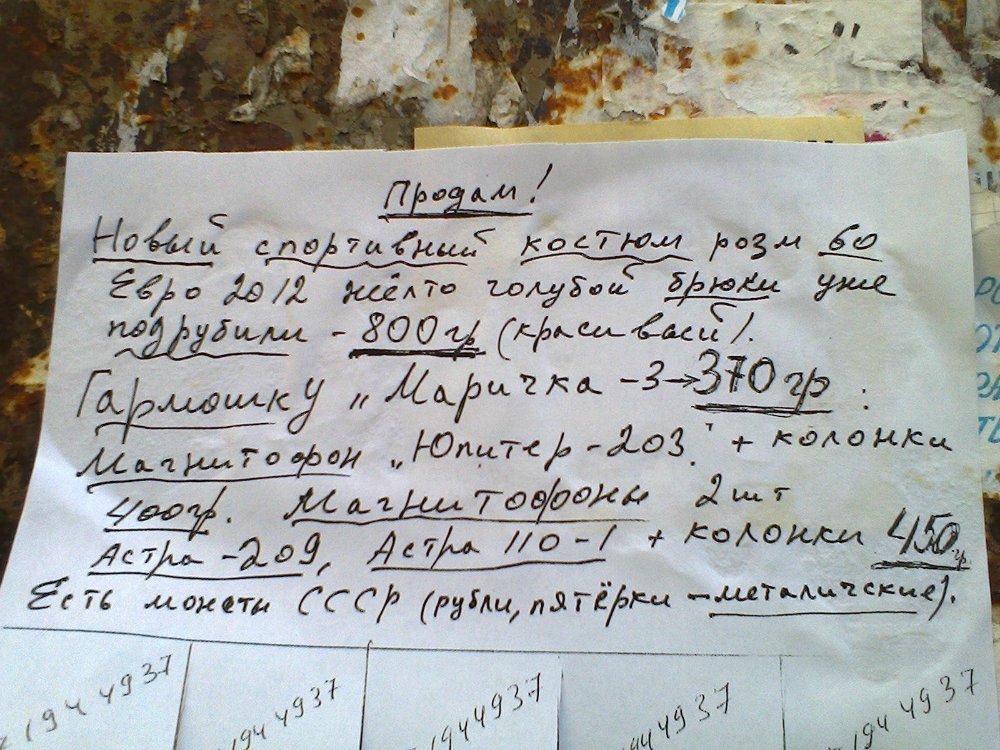 Продам!
Новый спортивный костюм розм 60
Евро 2012 жёлто голубой брюки уже
подрубили - 800 гр (красивый!.
Гармошку „Маричка -3→370 гр .
Магнитофон „Юпитер-203" + колонки
400гр. Магнитофоны 2 шт
Астра -209, Астра 110-1 + колонки 450 гр
Есть монеты СССР (рубли, пятёрки - металичские).
1944937 1944937 1944937 1944937 1944937